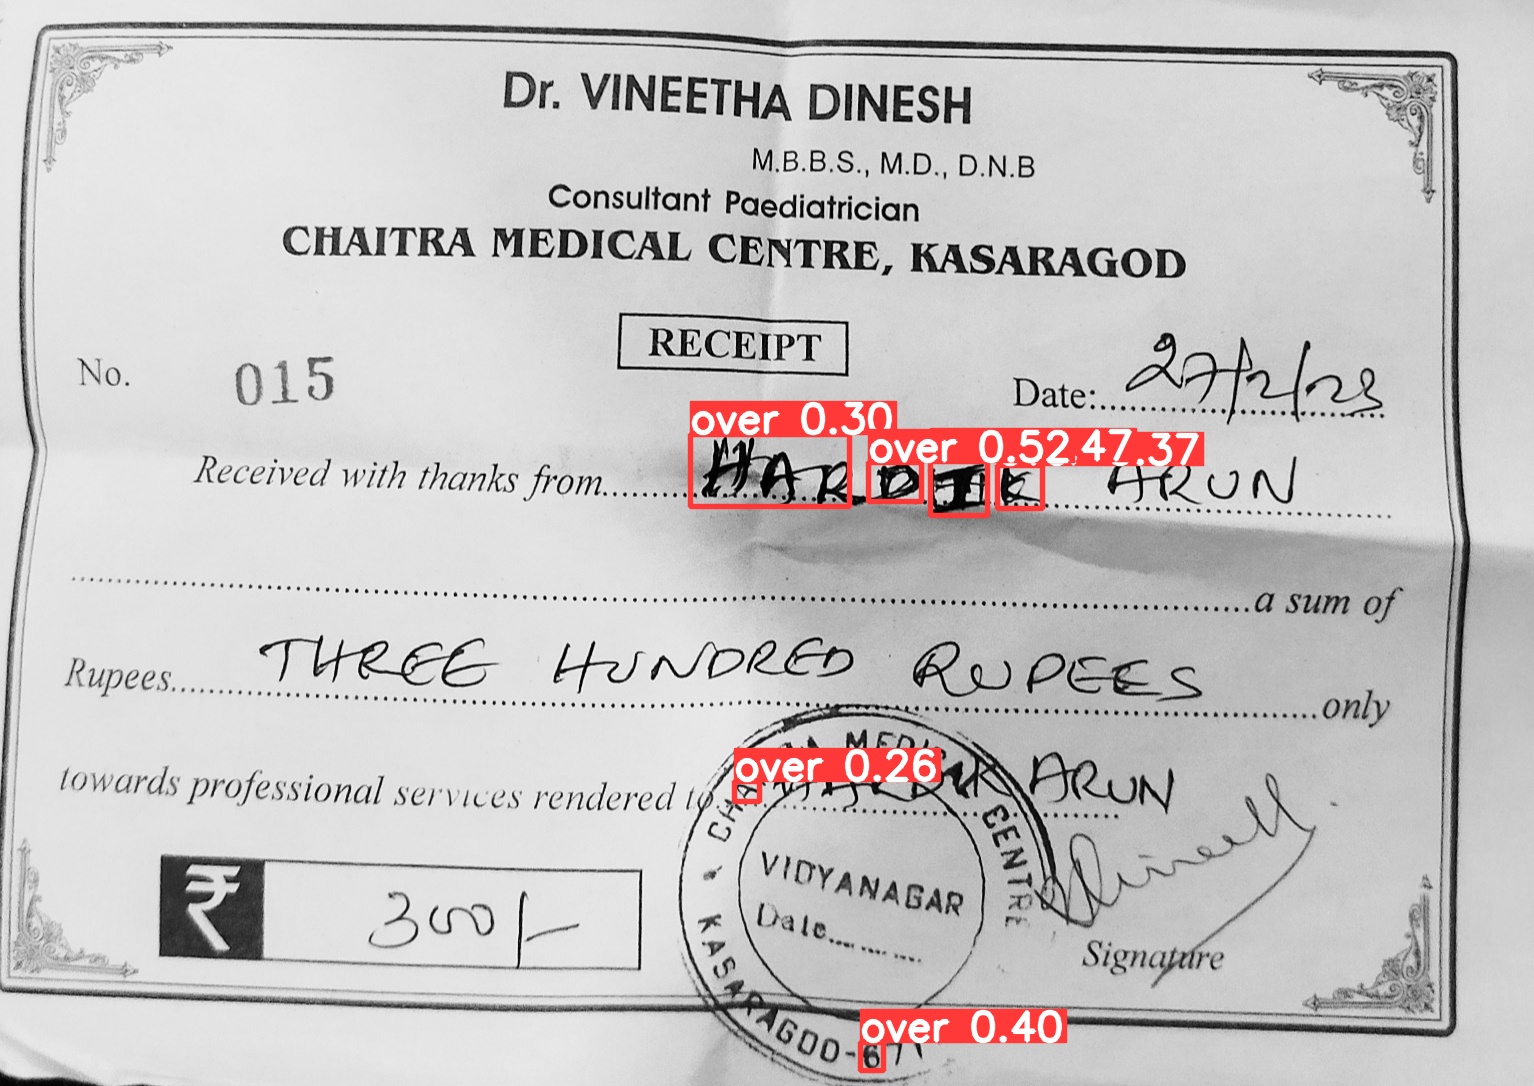 Dr. VINEETHA DINESH
M.B.B.S., M.D., D.N.B
Consultant Paediatrician
CHAITRA MEDICAL CENTRE, KASARAGOD
RECEIPT
No. 015
Date: 27/2/23
over 0.30
over 0.52 .47 .37
Received with thanks from HARDIK ARUN
a sum of
Rupees THREE HUNDRED RUPEES only
over 0.26
towards professional services rendered to ARUN
MEDICAL CENTRE
VIDYANAGAR
Date
KASARAGOD-671
₹ 300/-
Signature
over 0.40